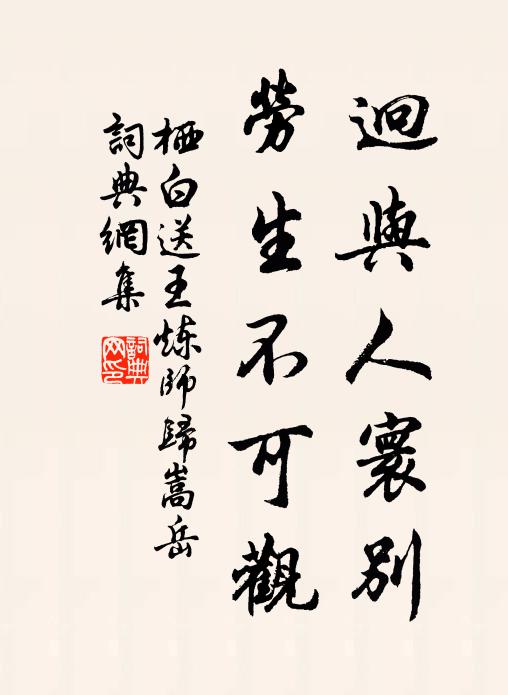 迥與人寰別
勞生不可觀
栖白送王煉師歸嵩岳
詞典網集
詞典網印